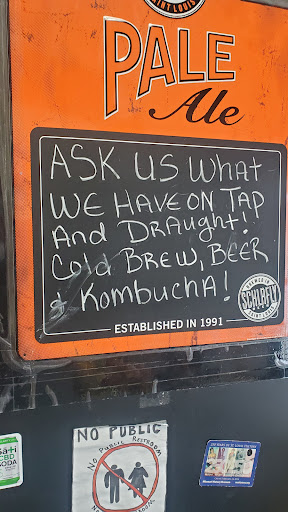 SAINT LOUIS
PALE
Ale
ASK US WHAT
WE HAVE ON TAP
And DRAUGHT!
Cold BREW, BEER
& KombuchA!
SCHLAFLY
ESTABLISHED IN 1991
NO PUBLIC
NO PUBLIC RESTROOM
CBD
SODA